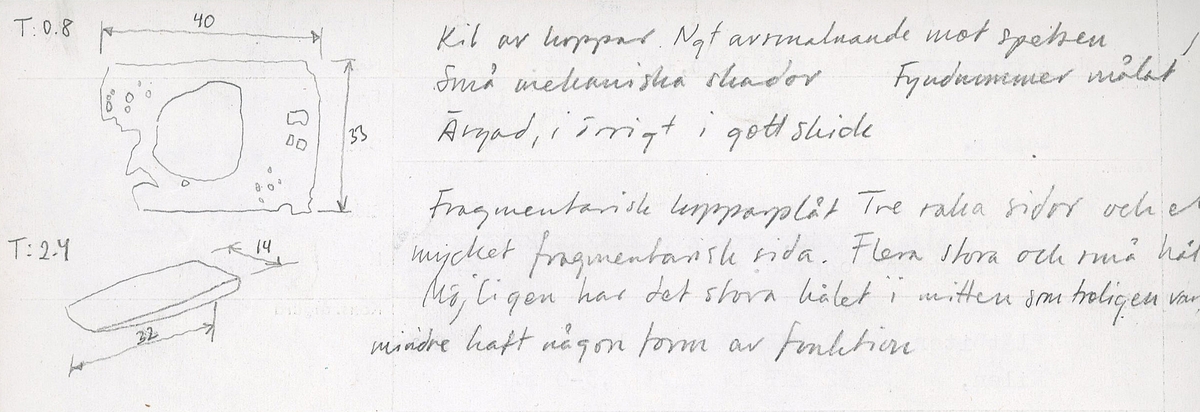 T: 0.8
40
33
T: 2.4
14
32
Kil av koppar. Ngt avsmalnande mot spetsen
Små mekaniska skador Fyndnummer målat
Ärgad, i övrigt i gott skick
Fragmentarisk kopparplåt Tre raka sidor och
mycket fragmentarisk sida. Flera stora och små hål
Möjligen har det stora hålet i mitten som troligen var
mindre haft någon form av funktion